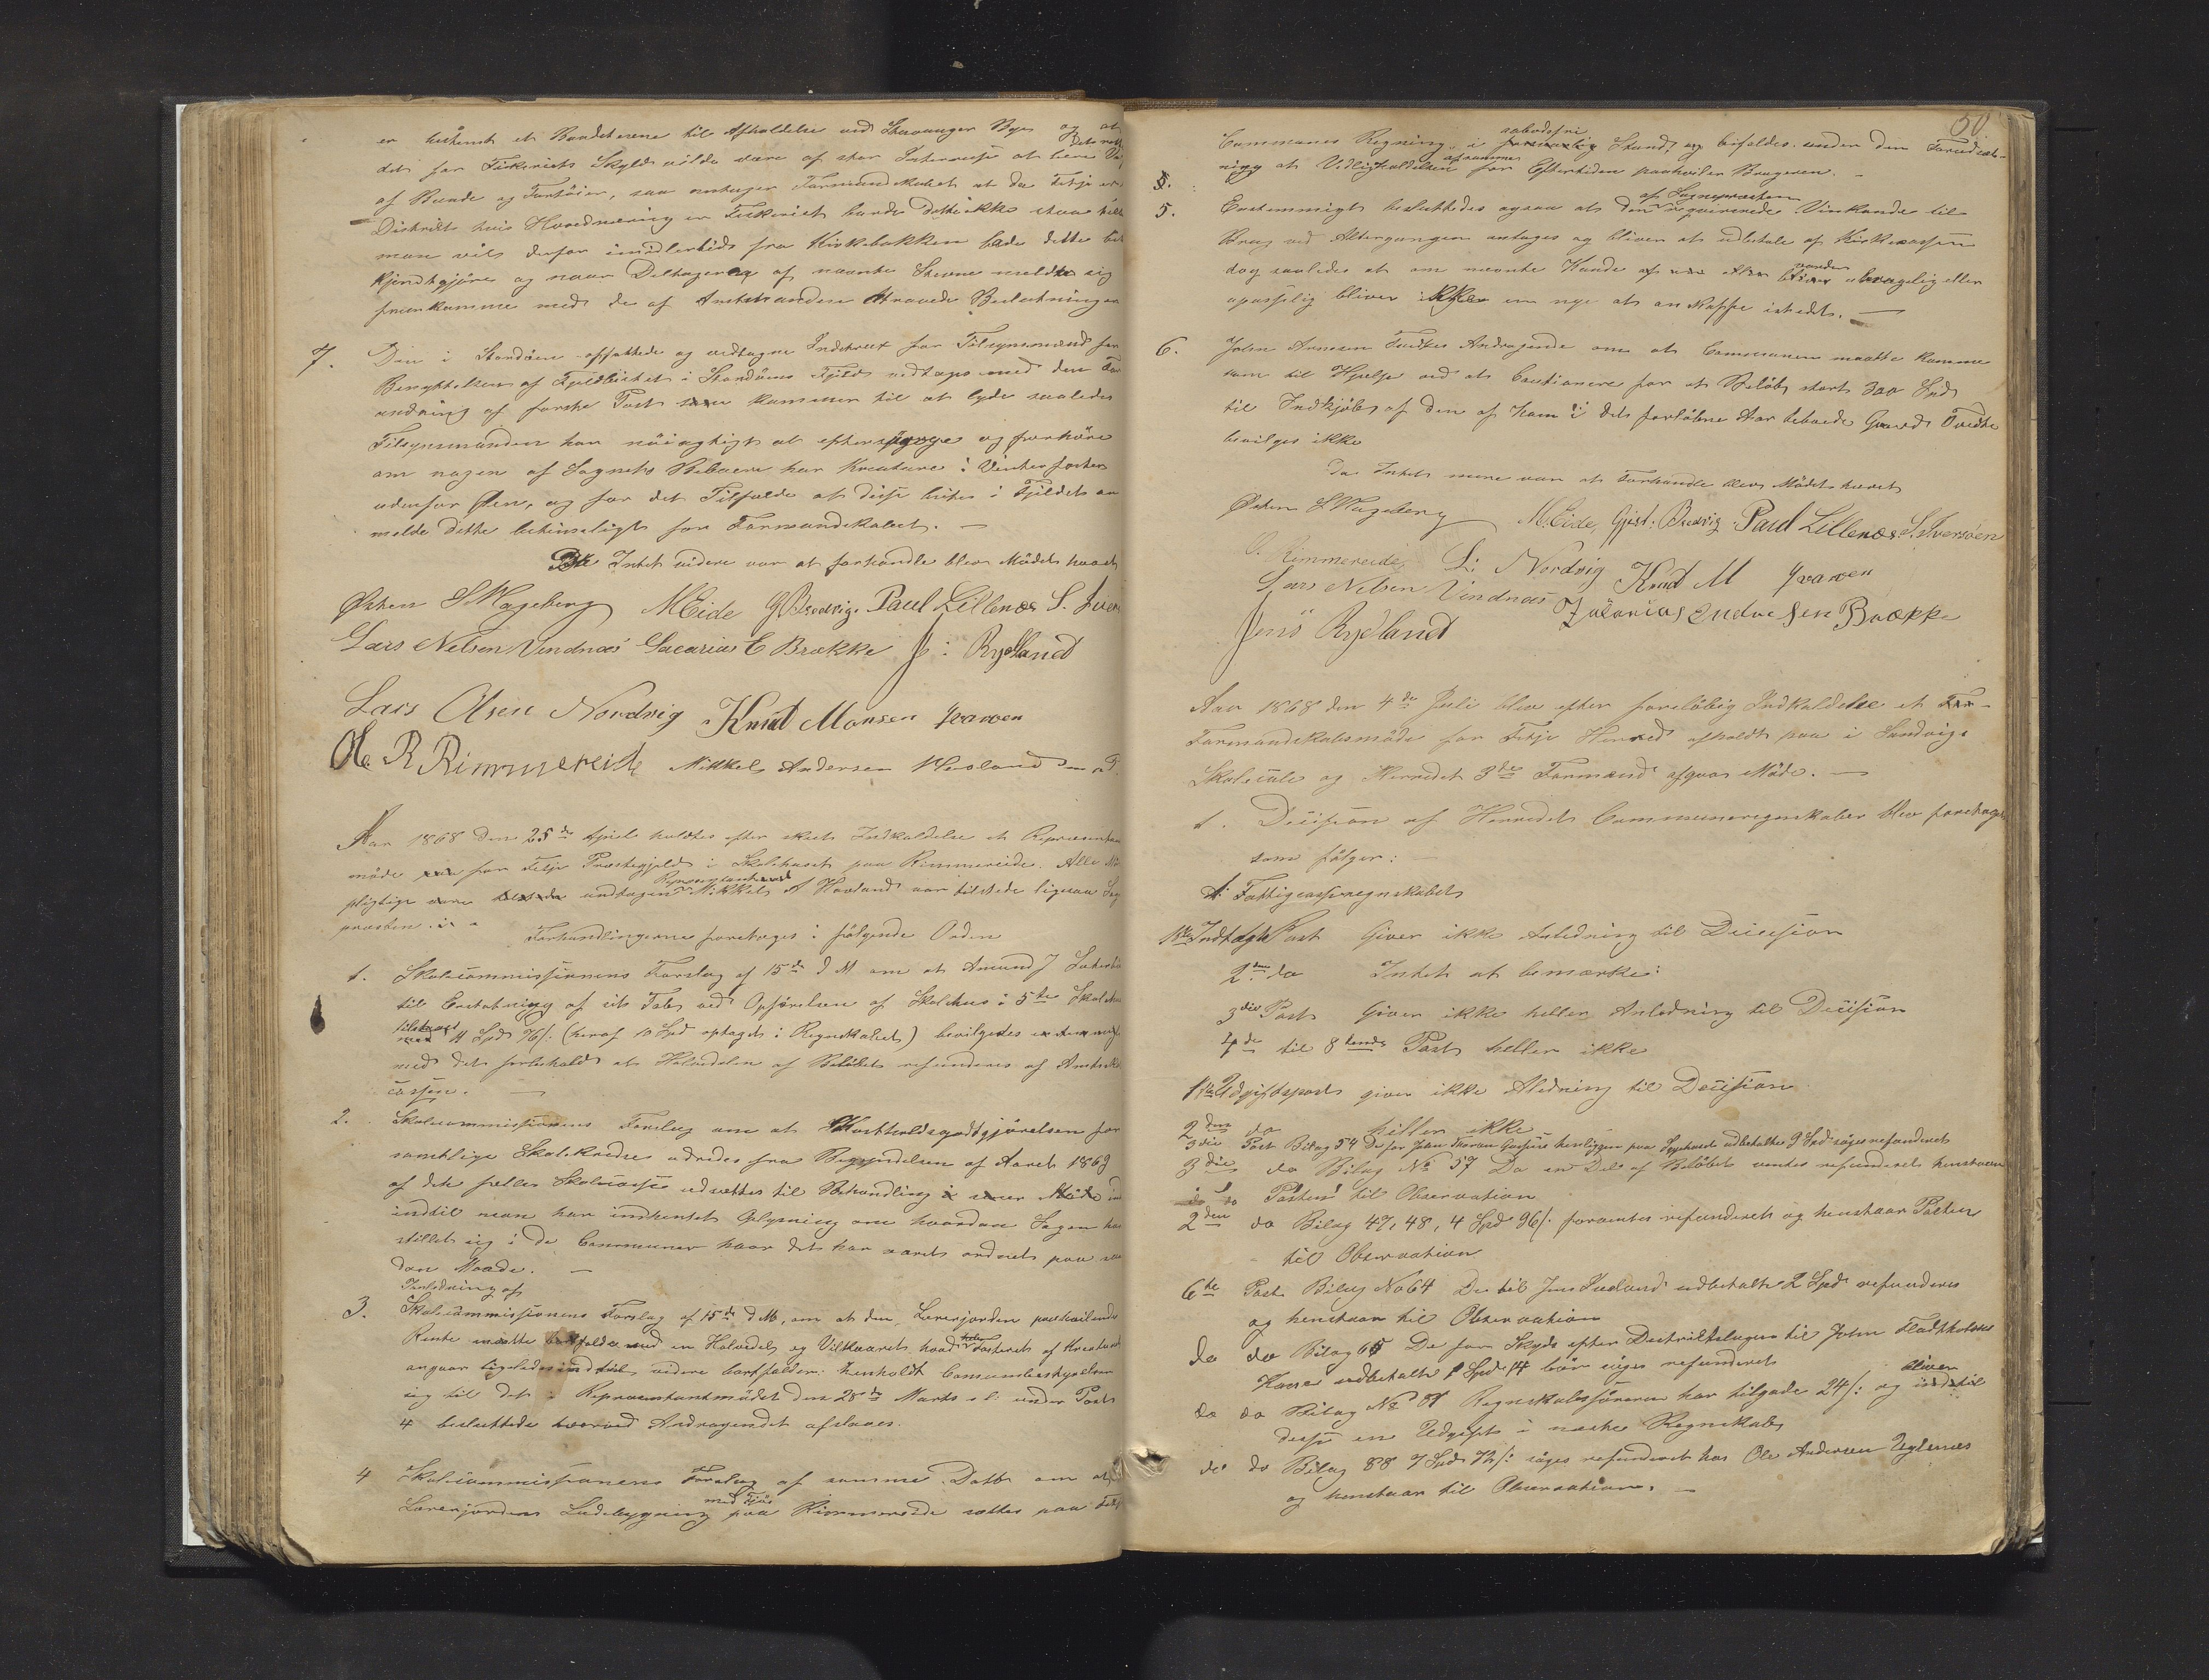 er bestemt et Baadstevne til Afholdelse ved Stavanger Byes og at
det for Fiskeriets Skyld vilde være af stor Interesse at bese
af Baade og Fartøier, saa antager Formandskabet at da Fitje er
Distrikt hvis Hovednæring er Fiskeriet burde dette ikke staa
man vil derfor imidlertid fra Kirkebakken lade dette
kjendtgjøre og naar Deltagere af nævnte Stevne meldte sig
fremkomme med de af Amtmanden Beslutninger
7. Den i Stordøen affattede og vedtagne Instrux for Tilsynsmænd for
Benyttelsen af Fjeldbeitet i Stordøens Fjeld vedtages med den For
andring af første Post kommer til at lyde saaledes
Tilsynsmanden har nøiagtigt at efterspørge og forhøre
om nogen af Sognets Beboere har Kreature i Vinterfoster
udenfor Øen, og for det Tilfælde at disse beites i Fjeldet an
melde dette betimeligt for Formandskabet. —
Da Intet videre var at forhandle blev Mødet hævet
Østen S Mageberg M Eide G Brodvig. Paul Lillenæs S. Iver
Lars Nelsen Vindnæs Sacarias E Brække J: Rydland
Lars Olsen Nordvig Knud Monsen
Ole R Rimmereide Mikkel Andersen Hovland
Aar 1868 den 25de April holdtes efter skeet Indkaldelse et Repræsentant
møde for Fitje Præstegjeld i Skolehuset paa Rimmereide. Alle
Repræsentant
pligtige undtagen Mikkel A Hovland var tilstede ligesaa Sog
præsten.
Forhandlingerne foretoges i følgende Orden
1. Skolecommissionens Forslag af 15de d M om at Amund J
til Erstatning af sit Tab ved Opførelsen af Skolehus i 5te Skole
tilstaaes 11 Spd 76 s: (heraf 10 Spd optaget i Regnskabet) bevilgedes
med det forbehold at Halvdelen af Beløbet refunderes af Amtsskole
cassen. —
2. Skolecommissionens Forslag om at Kostholdsgodtgjørelsen for
samtlige Skolekredse udredes fra Begyndelsen af Aaret 1869
af det fælles Skolecasse udsættes til Behandling
indtil man har indhentet Oplysning om hvordan Sagen har
stillet sig i de Communer hvor det har været ordnet paa saa
dan Maade. —
Indledning af
3. Skolecommissionens Forslag af 15de d M, om at den Lærerjorden paahvilende
Rente maatte bortfalde med en Halvdel og Vilkaaret hvad Fosteret af Kreature
angaar ligeledes indtil videre bortfalder. henholdt Communebestyrelsen
sig til det i Repræsentantmødet den 28de Marts d. under Post
4 besluttede hvorved Andragendet afslaaes.
4 Skolecommissionens Forslag af samme Dato om at
med Fjøs
Lærerjordens Ladebygning paa Rimmereide sættes paa
50
aabodsfri
Communens Regning i Stand, og bifaldes under den Forudsæt-
af samme
ning at Vedligeholdelsen for Eftertiden paahviler Brugeren. —
af Sognepræsten
5. Enstemmigt besluttedes ogsaa at den reqvirerede Vinkande til
Brug ved Altergangen antages og bliver at udbetale af Kirkecassen
dog saaledes at om nævnte Kande vorder ubrugelig eller
upasselig bliver en nye at anskaffe istedet. —
6. John Arnesen Andragende om at Communen maatte komme
ham til Hjelp ved at Cautionere for et Beløb stort 300 Spd
til Indkjøb af den af ham i det forløbne Aar beboede Gaard
bevilges ikke
Da Intet mere var at Forhandle blev Mødet hævet
Østen S Mageberg M. Eide, Gjert: Brodvig Paul Lillenæs S. Iversøen
O. Rimmereide, L: Nordvig Knud M
Lars Nelsen Vindnæs Zakarias Endresen Brække
Jens Rydland
Aar 1868 den 4de Juli blev efter foreløbig Indkaldelse et For-
Formandskabsmøde for Fitje Herred afholdt paa i Sandvigs
Skolestue og Herredets 3de Formænd afgav Møde. —
1. Decision af Herredets Communeregnskaber blev foretaget
som følger: —
A: Fattigcasseregnskabet
1ste Indtægts Post Giver ikke Anledning til Decision
2den do Intet at bemærke:
3die Post Giver ikke heller Anledning til Decision
4de til 8tende Post heller ikke
1ste Udgiftspost giver ikke Aledning til Decision
2den do heller ikke
3die Post Bilag 54 De for John henliggen paa Sygehuset udbetalte 9 Spd søges refunderet
3die do Bilag No 57 Da en Del af Beløbet ventes refunderet henstaaer
Posten til Observation
2den do Bilag 47, 48, 4 Spd 96 s. forventes refunderet og henstaar Posten
til Observation
6te Post Bilag No 64 De til Jens udbetalte 2 Spd refunderes
og henstaar til Observation
do do Bilag 65 De for Skyds efter Distriktslægen til John
Kone udbetalte 1 Spd 14 bør søges refunderet
bliver
do do Bilag No 81 Regnskabsføreren har tilgode 24 s: og
disse en Udgift i næste Regnskab
do do Bilag 88 7 Spd 72 s: søges refunderet hos Ole Andersen
og henstaar til Observation. —